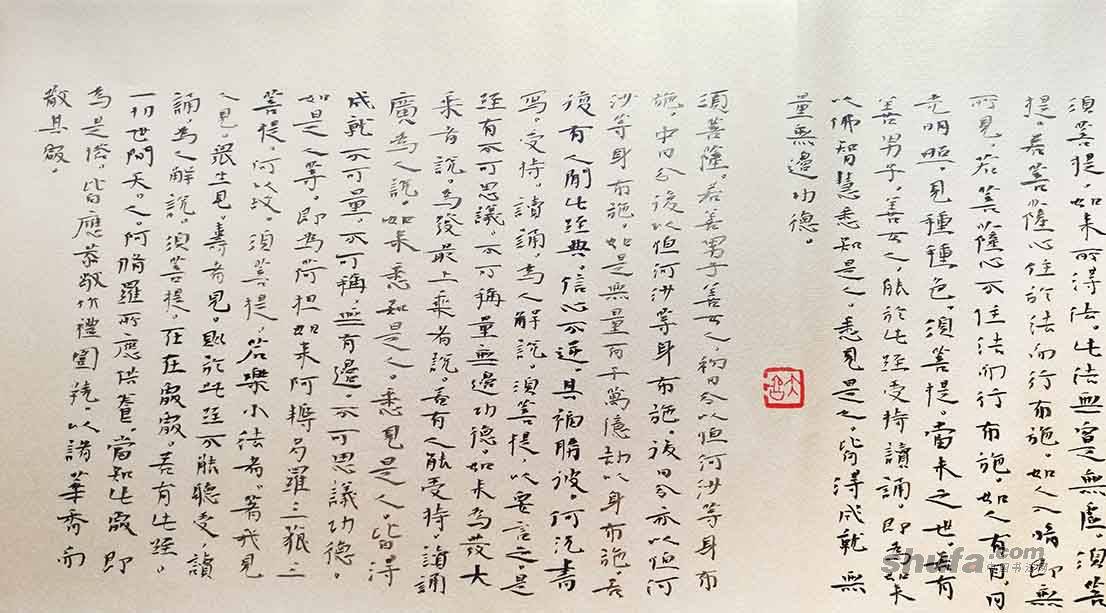 須菩提。如來所得法。此法無實無虛。須菩
提。若菩薩心住於法而行布施。如人入暗即無
所見。若菩薩心不住法而行布施。如人有目。日
光明照。見種種色。須菩提。當來之世。若有
善男子。善女人。能於此經受持讀誦。即為如來
以佛智慧悉知是人。悉見是人。皆得成就無
量無邊功德。
須菩薩。若善男子善女人。初日分以恒河沙等身布
施。中日分復以恒河沙等身布施。後日分亦以恒河
沙等身布施。如是無量百千萬億劫以身布施。若
復有人聞此經典。信心不逆。其福勝彼。何況書
寫。受持。讀誦。為人解說。須菩提。以要言之。是
經有不可思議。不可稱量無邊功德。如來為發大
乘者說。為發最上乘者說。若有人能受持。讀誦
廣為人說。如來悉知是人。悉見是人。皆得
成就不可量。不可稱。無有邊。不可思議功德。
如是人等。即為荷担如來阿耨多羅三藐三
菩提。何以故。須菩提。若樂小法者。著我見
人見。眾生見。壽者見。則於此經不能聽受。讀
誦。為人解說。須菩提。在在處處。若有此經。
一切世間天。人。阿脩羅所應供養。當知此處即
為是塔。皆應恭敬作禮圍繞。以諸華香而
散其處。
shufa.com
中国书法网